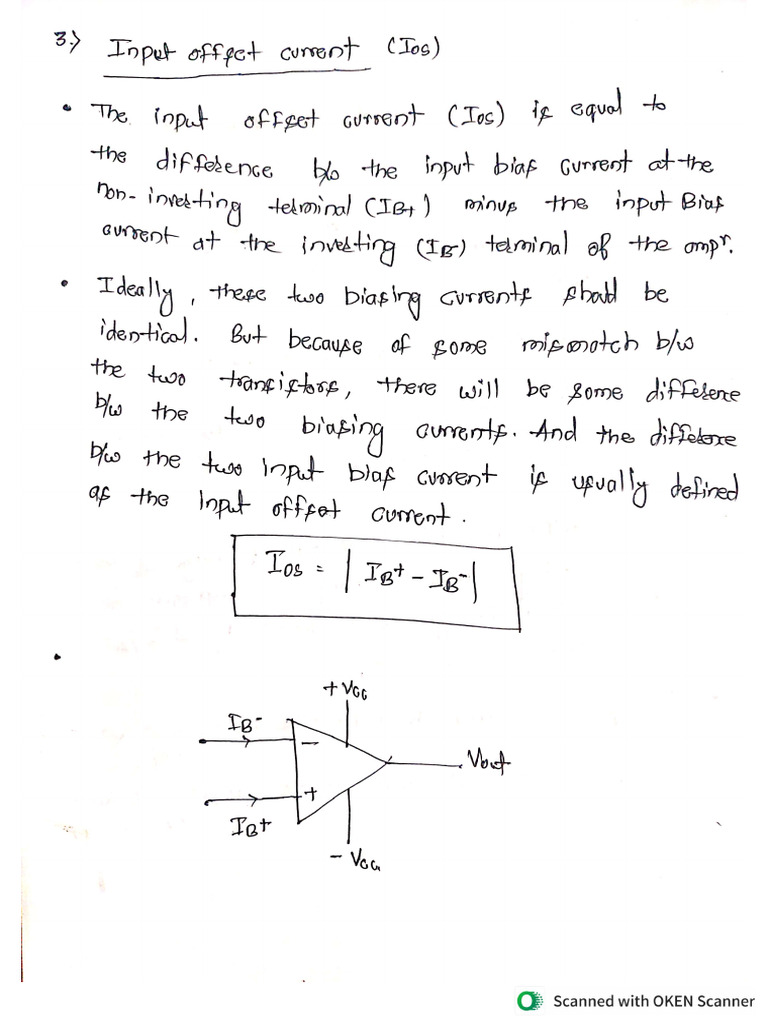 3.) Input offset current (Ios)
• The input offset current (Ios) is equal to
the difference b/w the input bias current at the
non-inverting terminal (IB+) minus the input Bias
current at the inverting (IB-) terminal of the ampr.
• Ideally, these two biasing currents should be
identical. But because of some mismatch b/w
the two transistors, there will be some difference
b/w the two biasing currents. And the difference
b/w the two input bias current is usually defined
as the input offset current.
Ios = | IB+ - IB- |
+ Vcc
IB-
-
Vout
+
IB+
- Vcc
Scanned with OKEN Scanner